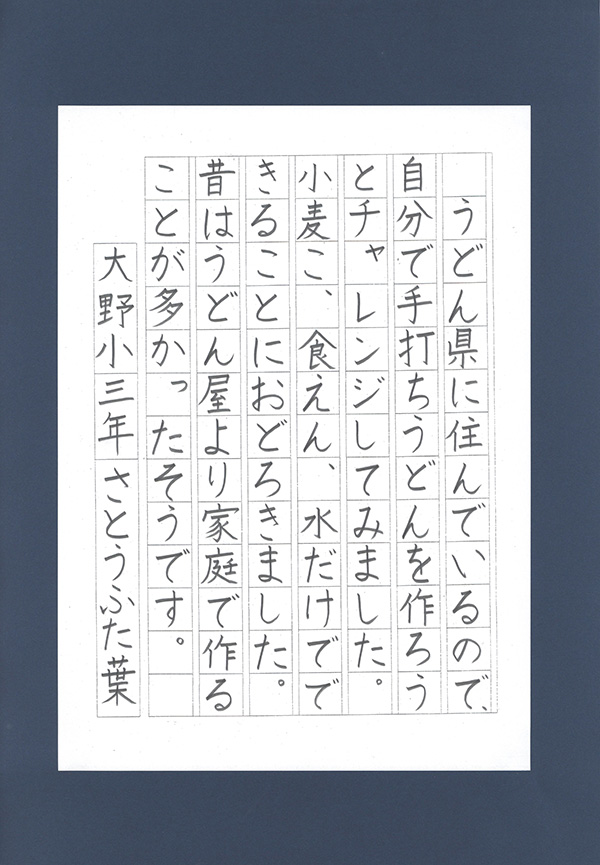 うどん県に住んでいるので、
自分で手打ちうどんを作ろう
とチャレンジしてみました。
小麦こ、食えん、水だけでで
きることにおどろきました。
昔はうどん屋より家庭で作る
ことが多かったそうです。
大野小三年さとうふた葉